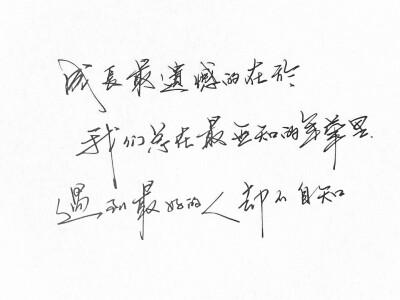 成長最遺憾的在於
我们总在最无知的年華里.
遇到最好的人 却不自知